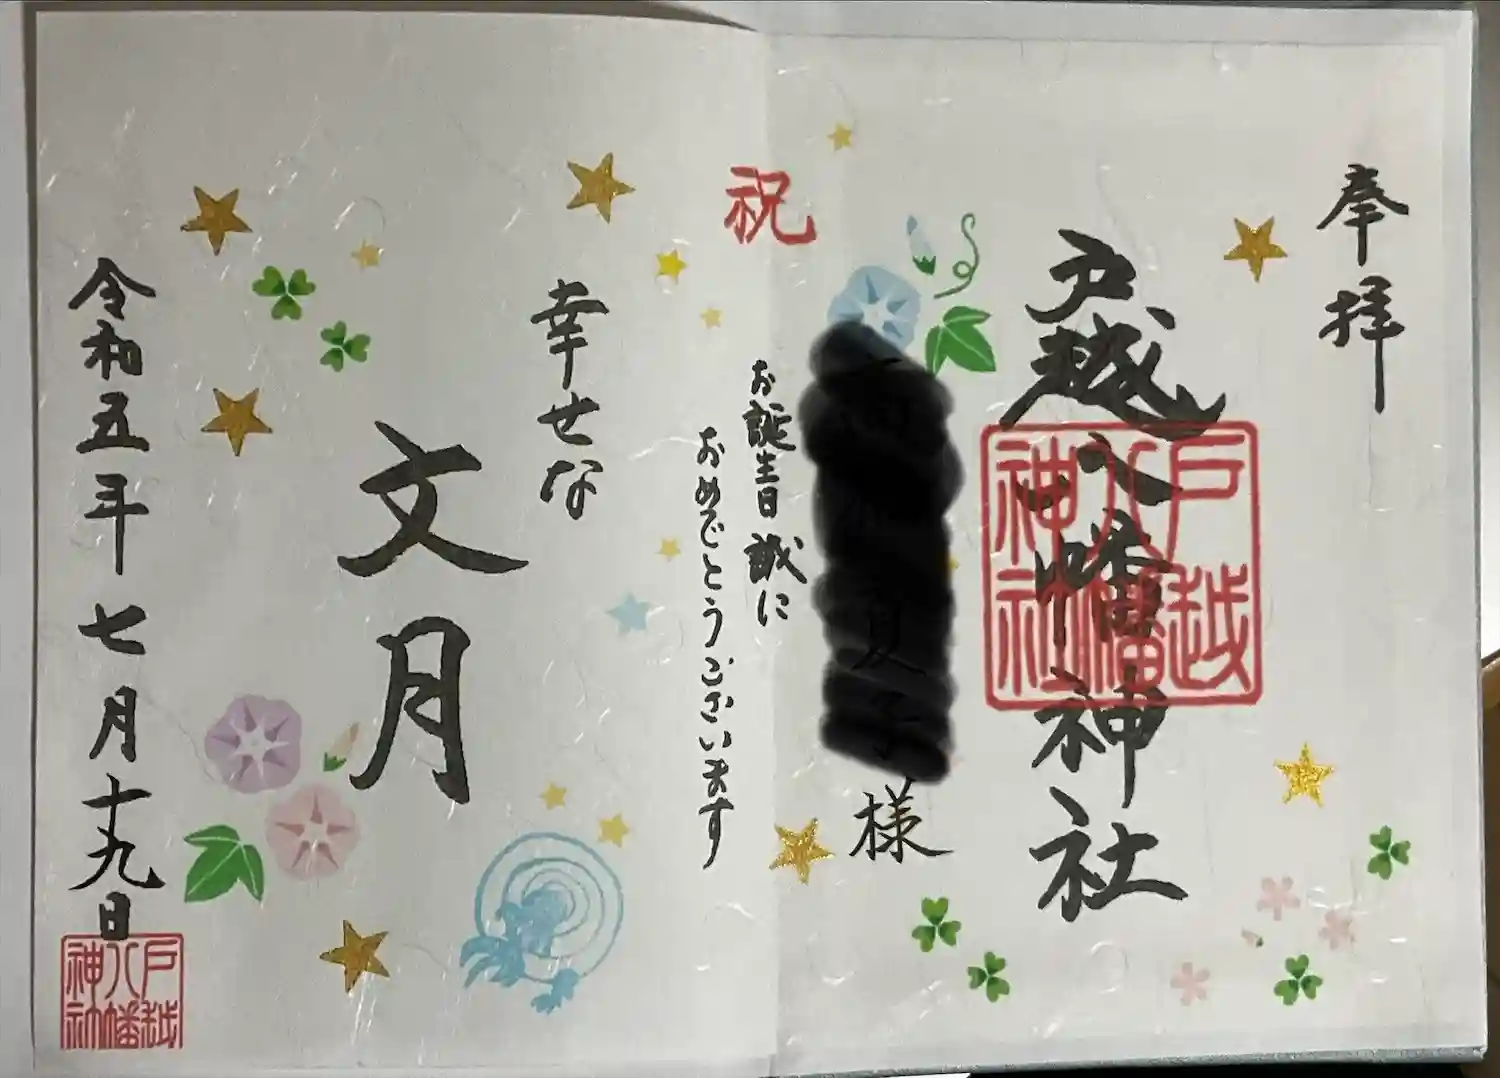 奉拝
戸越八幡神社
戸越
八幡
神社
様
祝
お誕生日 誠に
おめでとうございます
幸せな
文月
令和五年 七月十九日
戸越
八幡
神社